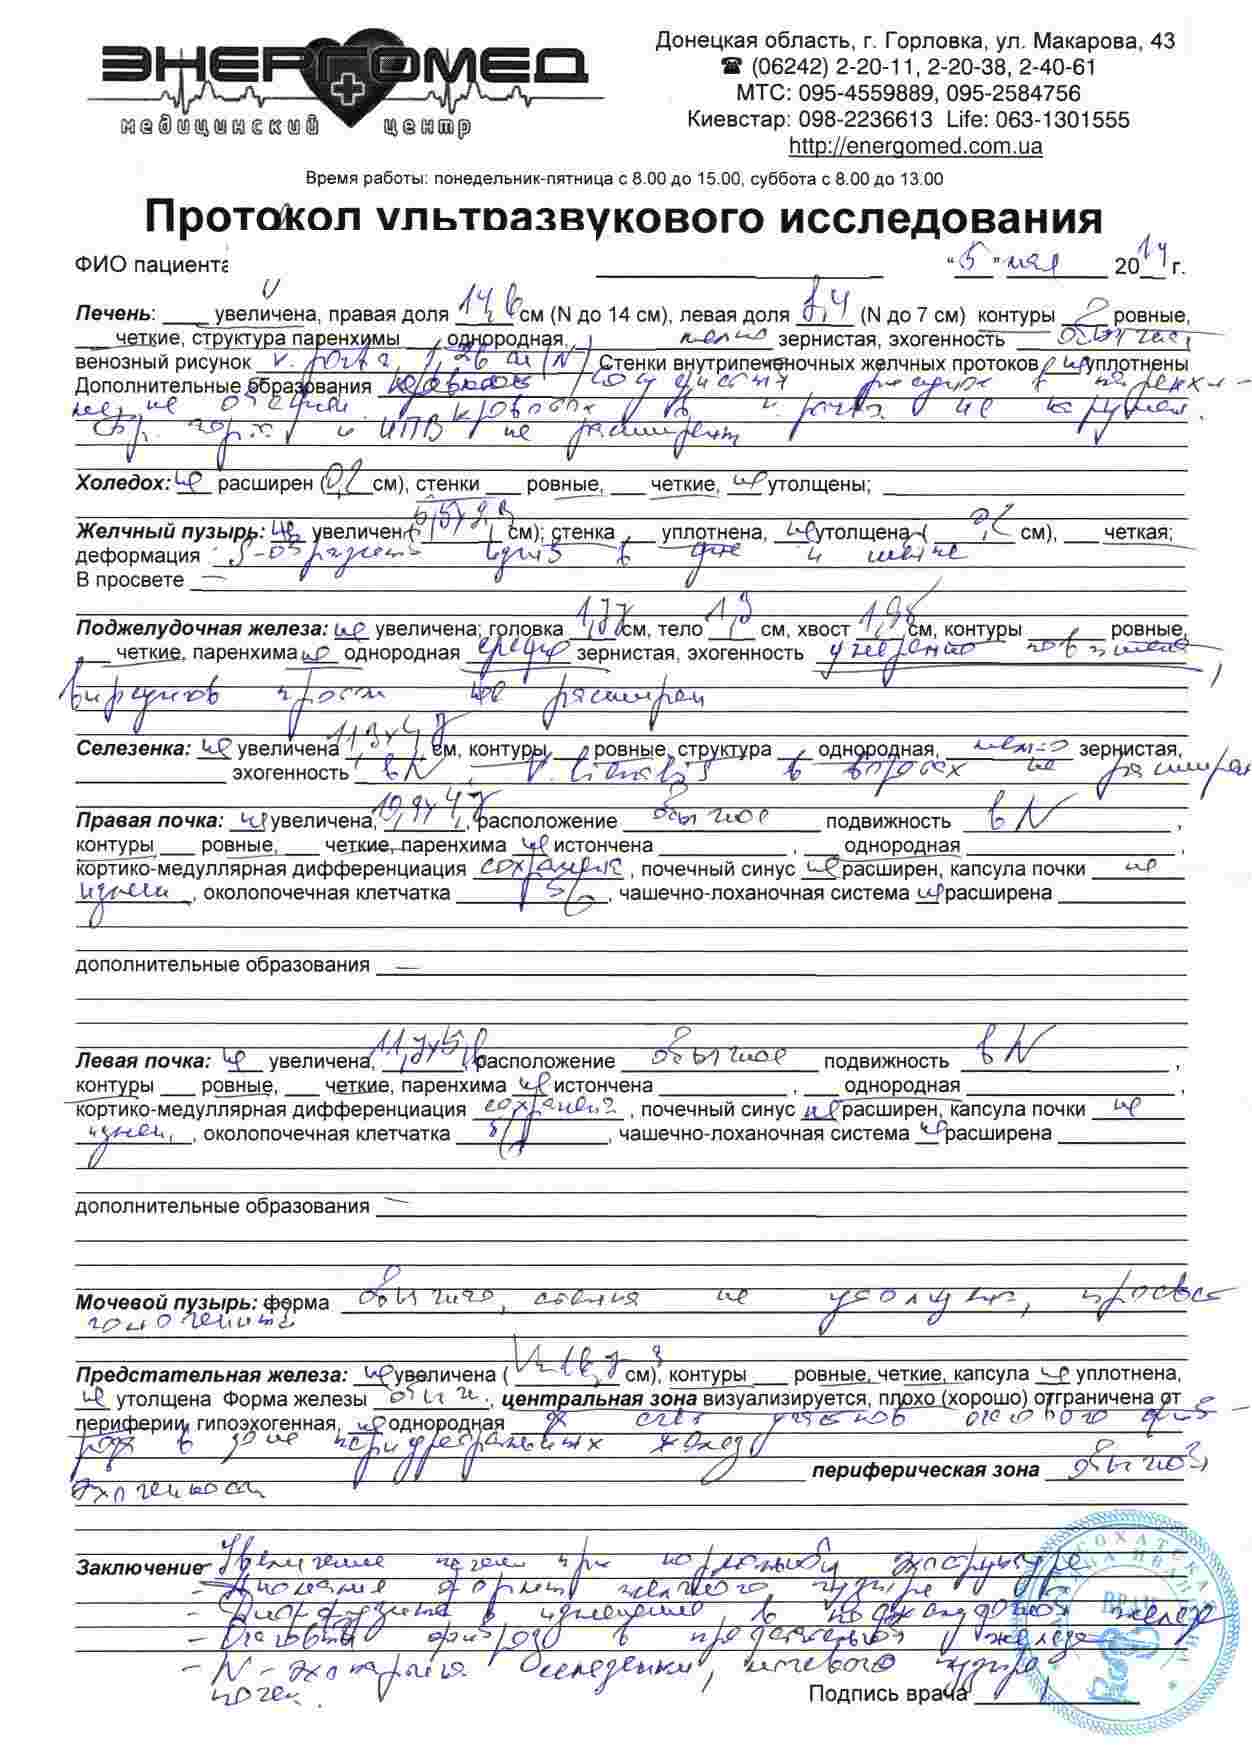 ЭНЕРГОМЕД
медицинский центр
Донецкая область, г. Горловка, ул. Макарова, 43
☎ (06242) 2-20-11, 2-20-38, 2-40-61
МТС: 095-4559889, 095-2584756
Киевстар: 098-2236613 Life: 063-1301555
http://energomed.com.ua
Время работы: понедельник-пятница с 8.00 до 15.00, суббота с 8.00 до 13.00
Протокол ультразвукового исследования
ФИО пациента "5" мая 2014 г.
Печень: увеличена, правая доля см (N до 14 см), левая доля (N до 7 см) контуры ровные,
четкие, структура паренхимы однородная, мелко зернистая, эхогенность
венозный рисунок v. porta 1,26 см (N) Стенки внутрипеченочных желчных протоков не уплотнены
Дополнительные образования сосудистый рисунок в
кровоток в не
и НПВ не расширены
Холедох: не расширен ( см), стенки ровные, четкие, не утолщены;
Желчный пузырь: не увеличен ( см); стенка уплотнена, не утолщена ( см), четкая;
деформация S-образный изгиб в дне и шейке
В просвете —
Поджелудочная железа: не увеличена; головка 1,77 см, тело 1,3 см, хвост 1,95 см, контуры ровные,
четкие, паренхима не однородная средне зернистая, эхогенность умеренно
вирсунгов проток не расширен
Селезенка: не увеличена см, контуры ровные, структура однородная, мелко зернистая,
эхогенность в N, v. lienalis в воротах не расширена
Правая почка: не увеличена, расположение обычное подвижность в N,
контуры ровные, четкие, паренхима не истончена , однородная ,
кортико-медуллярная дифференциация сохранена, почечный синус не расширен, капсула почки не
измен, околопочечная клетчатка , чашечно-лоханочная система не расширена
дополнительные образования —
Левая почка: не увеличена, расположение обычное подвижность в N,
контуры ровные, четкие, паренхима не истончена , однородная ,
кортико-медуллярная дифференциация сохранена, почечный синус не расширен, капсула почки не
измен, околопочечная клетчатка , чашечно-лоханочная система не расширена
дополнительные образования —
Мочевой пузырь: форма обычная, стенка не утолщена, просвет
гомогенный
Предстательная железа: не увеличена ( см), контуры ровные, четкие, капсула не уплотнена,
не утолщена Форма железы обычн., центральная зона визуализируется, плохо (хорошо) отграничена от
периферии, гипоэхогенная, не однородная за счет участков очагового фиб-
роза в зоне периуретральных
периферическая зона обычной
эхогенности
Заключение - Увеличение печени при нормальной эхоструктуре
- Аномалия формы желчного пузыря
- Диффузные изменения в поджелудочной железе
- Очаговый фиброз в предстательной железе
- N - эхокартина селезенки, мочевого пузыря
почек.
Подпись врача
ВРАЧ